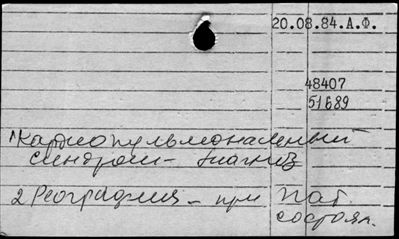 20.08.84.А.Ф.
48407
51689
1 Кардиопульмональный
синдром - диагноз
2 Реография - при Пат.
состоян.